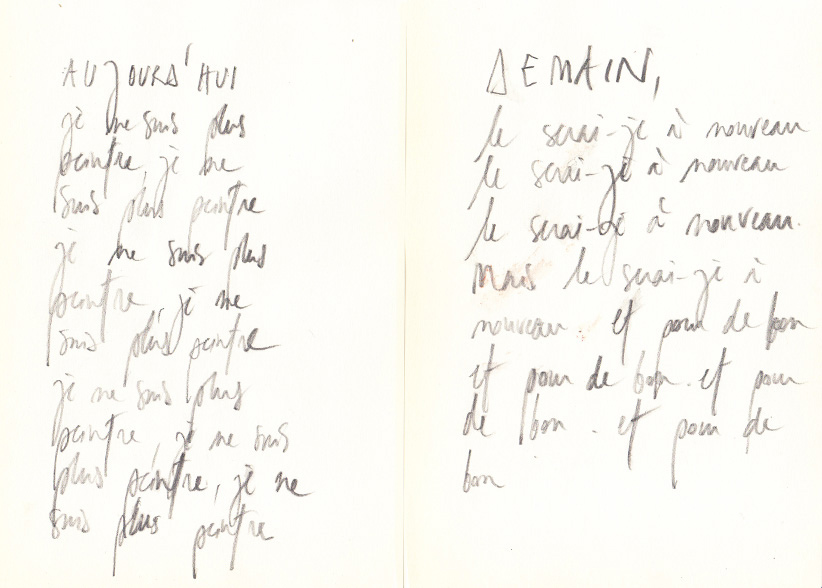 AUJOURD'HUI
je ne suis plus
peintre, je ne
suis plus peintre
je ne suis plus
peintre, je ne
suis plus peintre
je ne suis plus
peintre, je ne suis
plus peintre, je ne
suis plus peintre
DEMAIN,
le serai-je à nouveau
le serai-je à nouveau
le serai-je à nouveau.
Mais le serai-je à
nouveau. et pour de bon
et pour de bon. et pour
de bon. et pour de
bon